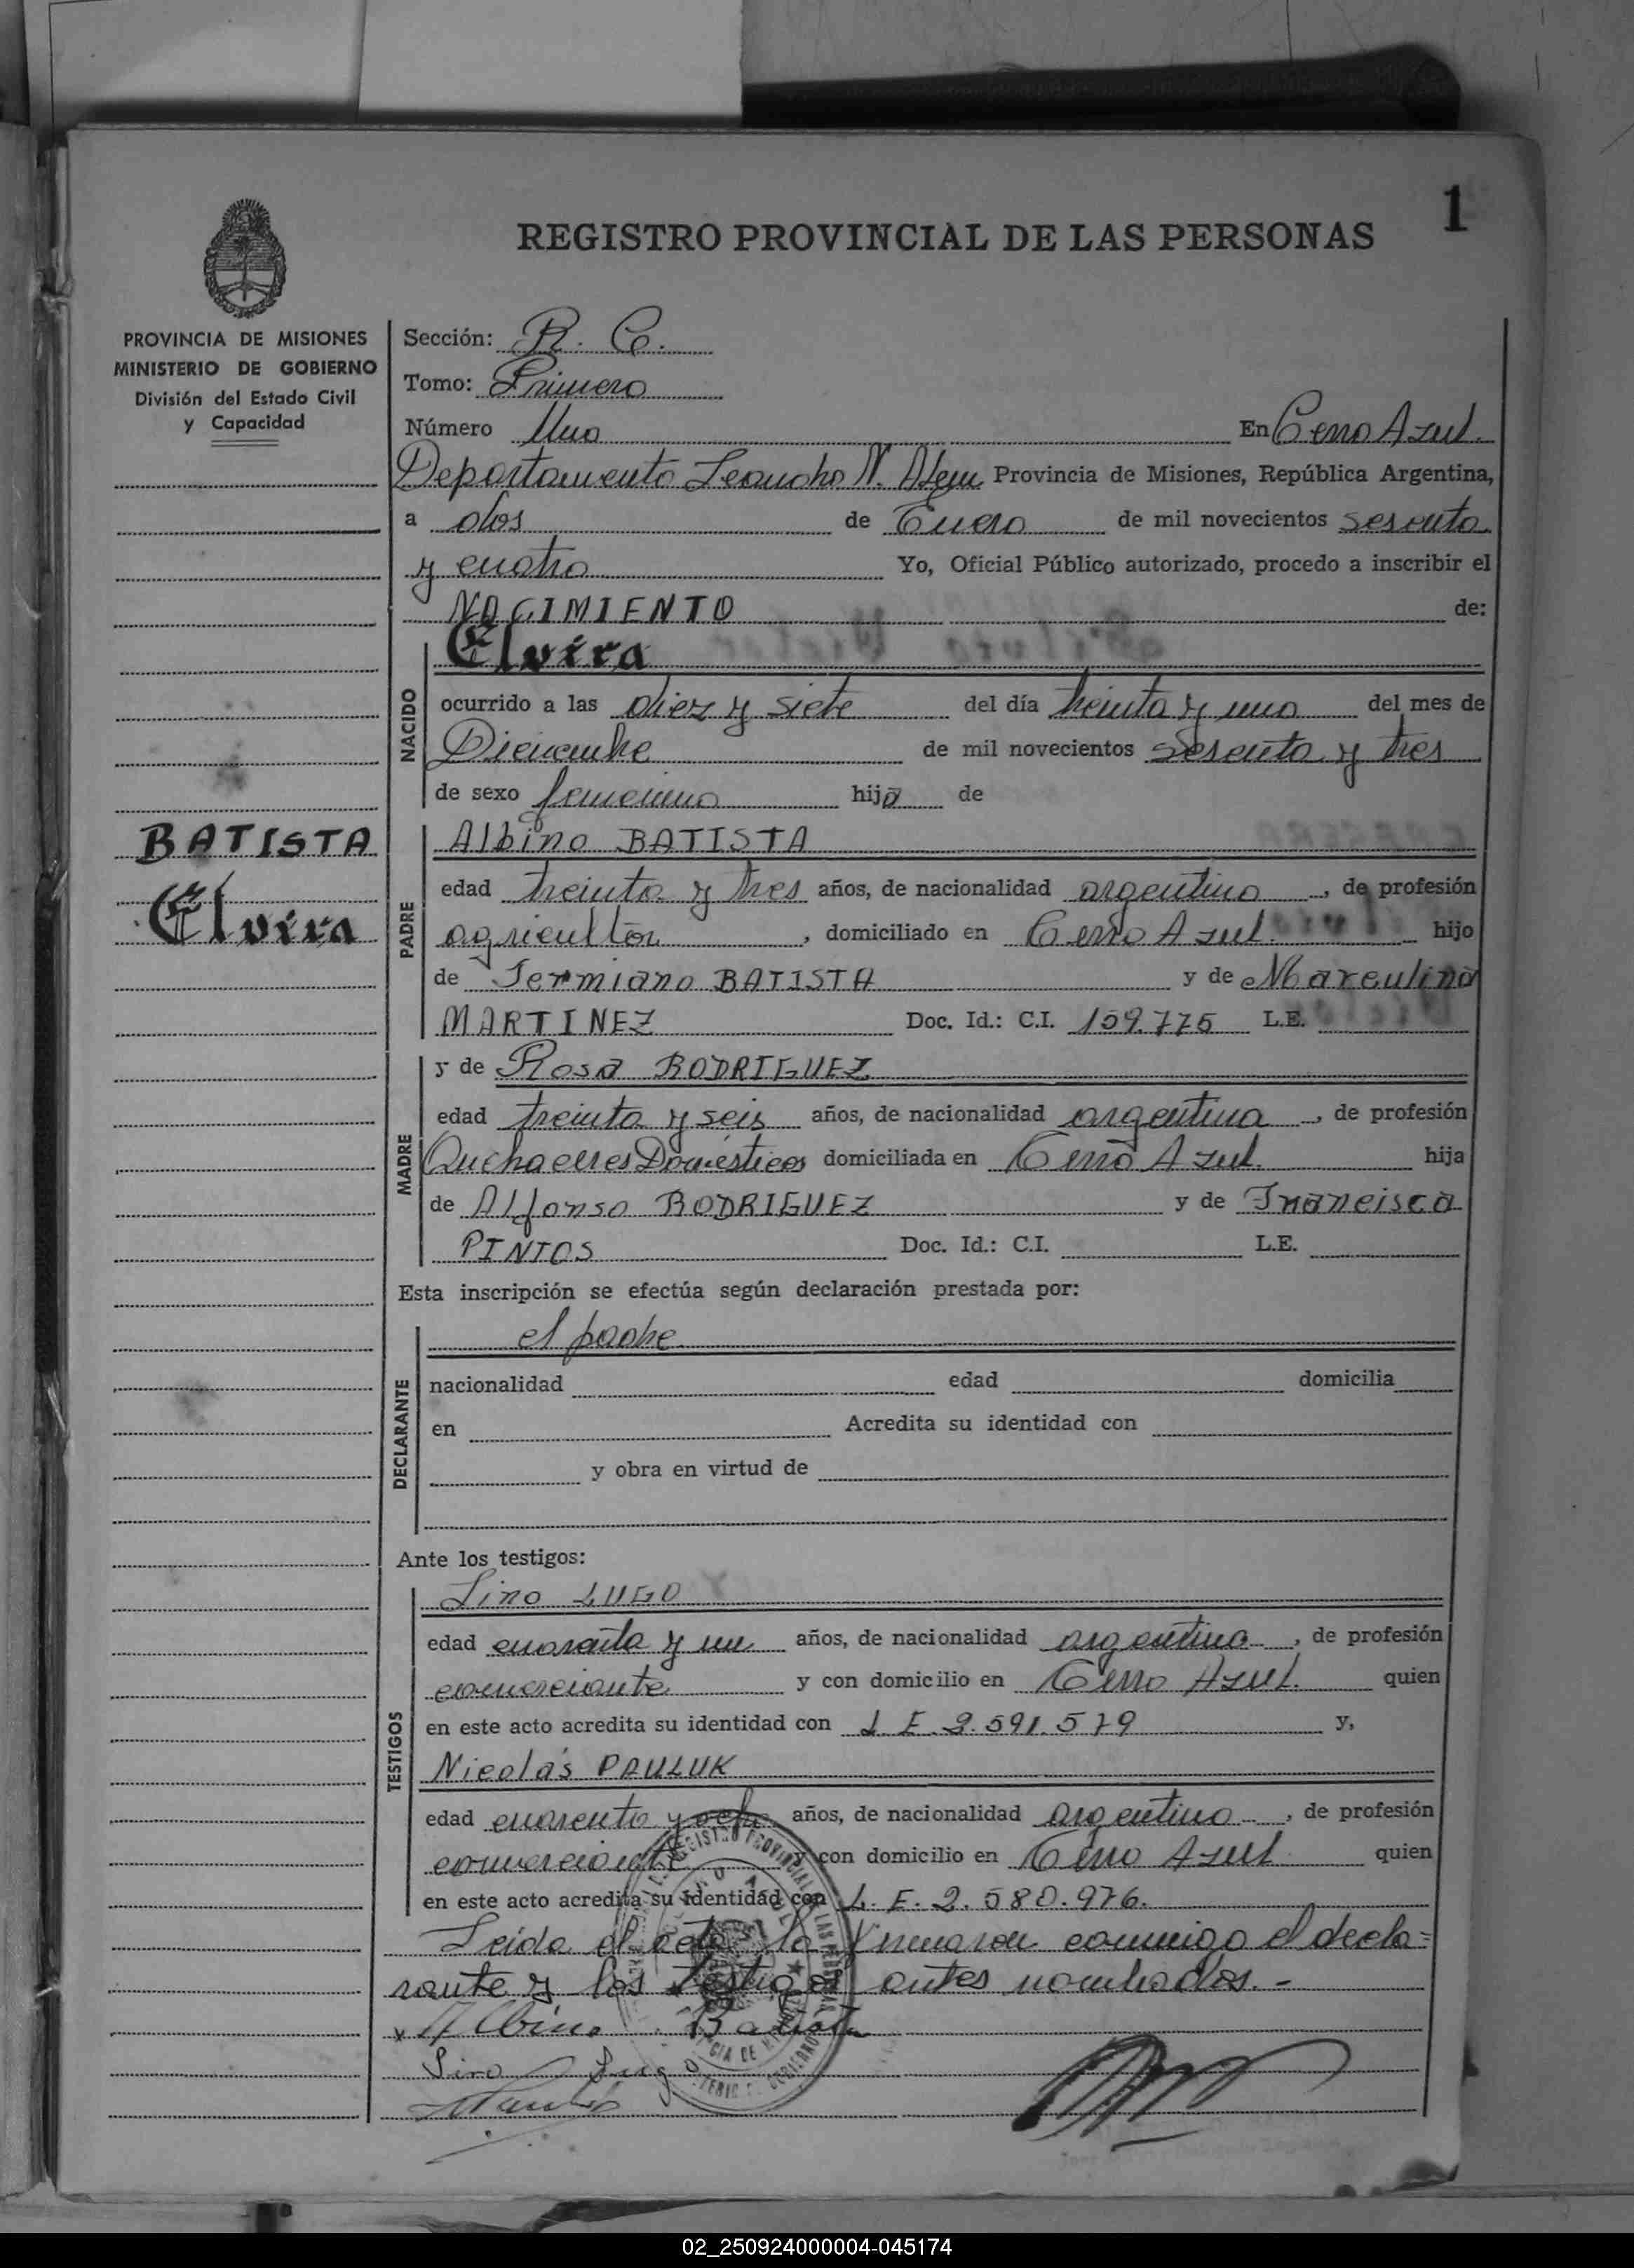 1
REGISTRO PROVINCIAL DE LAS PERSONAS
PROVINCIA DE MISIONES
MINISTERIO DE GOBIERNO
División del Estado Civil
y Capacidad
BATISTA
Elvira
Sección: R. C.
Tomo: Primero
Número Uno En Cerro Azul.
Departamento Leandro N. Alem Provincia de Misiones, República Argentina,
a dos de Enero de mil novecientos sesenta
y cuatro Yo, Oficial Público autorizado, procedo a inscribir el
NACIMIENTO de:
NACIDO
Elvira
ocurrido a las diez y siete del día treinta y uno del mes de
Diciembre de mil novecientos sesenta y tres
de sexo femenino hija de
PADRE
Albino BATISTA
edad treinta y tres años, de nacionalidad argentino, de profesión
agricultor, domiciliado en Cerro Azul. hijo
de Fermiano BATISTA y de Marculina
MARTINEZ Doc. Id.: C.I. 159.775 L.E.
MADRE
y de Rosa RODRIGUEZ
edad treinta y seis años, de nacionalidad argentina, de profesión
Quehaceres Domésticos domiciliada en Cerro Azul. hija
de Alfonso RODRIGUEZ y de Francisca
PINTOS Doc. Id.: C.I. L.E.
Esta inscripción se efectúa según declaración prestada por:
DECLARANTE
el padre
nacionalidad edad domicilia
en Acredita su identidad con
y obra en virtud de
Ante los testigos:
TESTIGOS
Lino LUGO
edad cuarenta y un años, de nacionalidad argentino, de profesión
comerciante y con domicilio en Cerro Azul. quien
en este acto acredita su identidad con L E. 2.591.579 y,
Nicolás PAULUK
edad cuarenta y ocho años, de nacionalidad argentino, de profesión
comerciante y con domicilio en Cerro Azul quien
en este acto acredita su identidad con L. E. 2.580.976.
Leída el acta, la firmaron conmigo el decla=
rante y los testigos antes nombrados.-
x Albino Batista
Liro Lugo
02_250924000004-045174